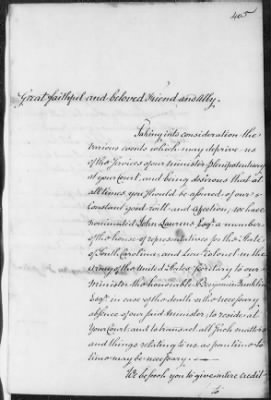 405
Great faithful and beloved Friend and Ally.
Taking into consideration the
various events which may deprive us
of the services of our minister plenipotentiary
at your Court, and being desirous that at
all times you should be assured of our
constant good will and affection, we have
nominated John Laurens Esqr. a member
of the house of representatives for the State
of South Carolina, and Lieu: Colonel in the
army of the United States secretary to our
minister the honorable Benjamin Franklin
Esqr. in case of the death or the necessary
absence of your said minister, to reside at
your Court, and to transact all such matters
and things relating to us as from time to
time may be necessary.
We beseech you to give entire credit
to